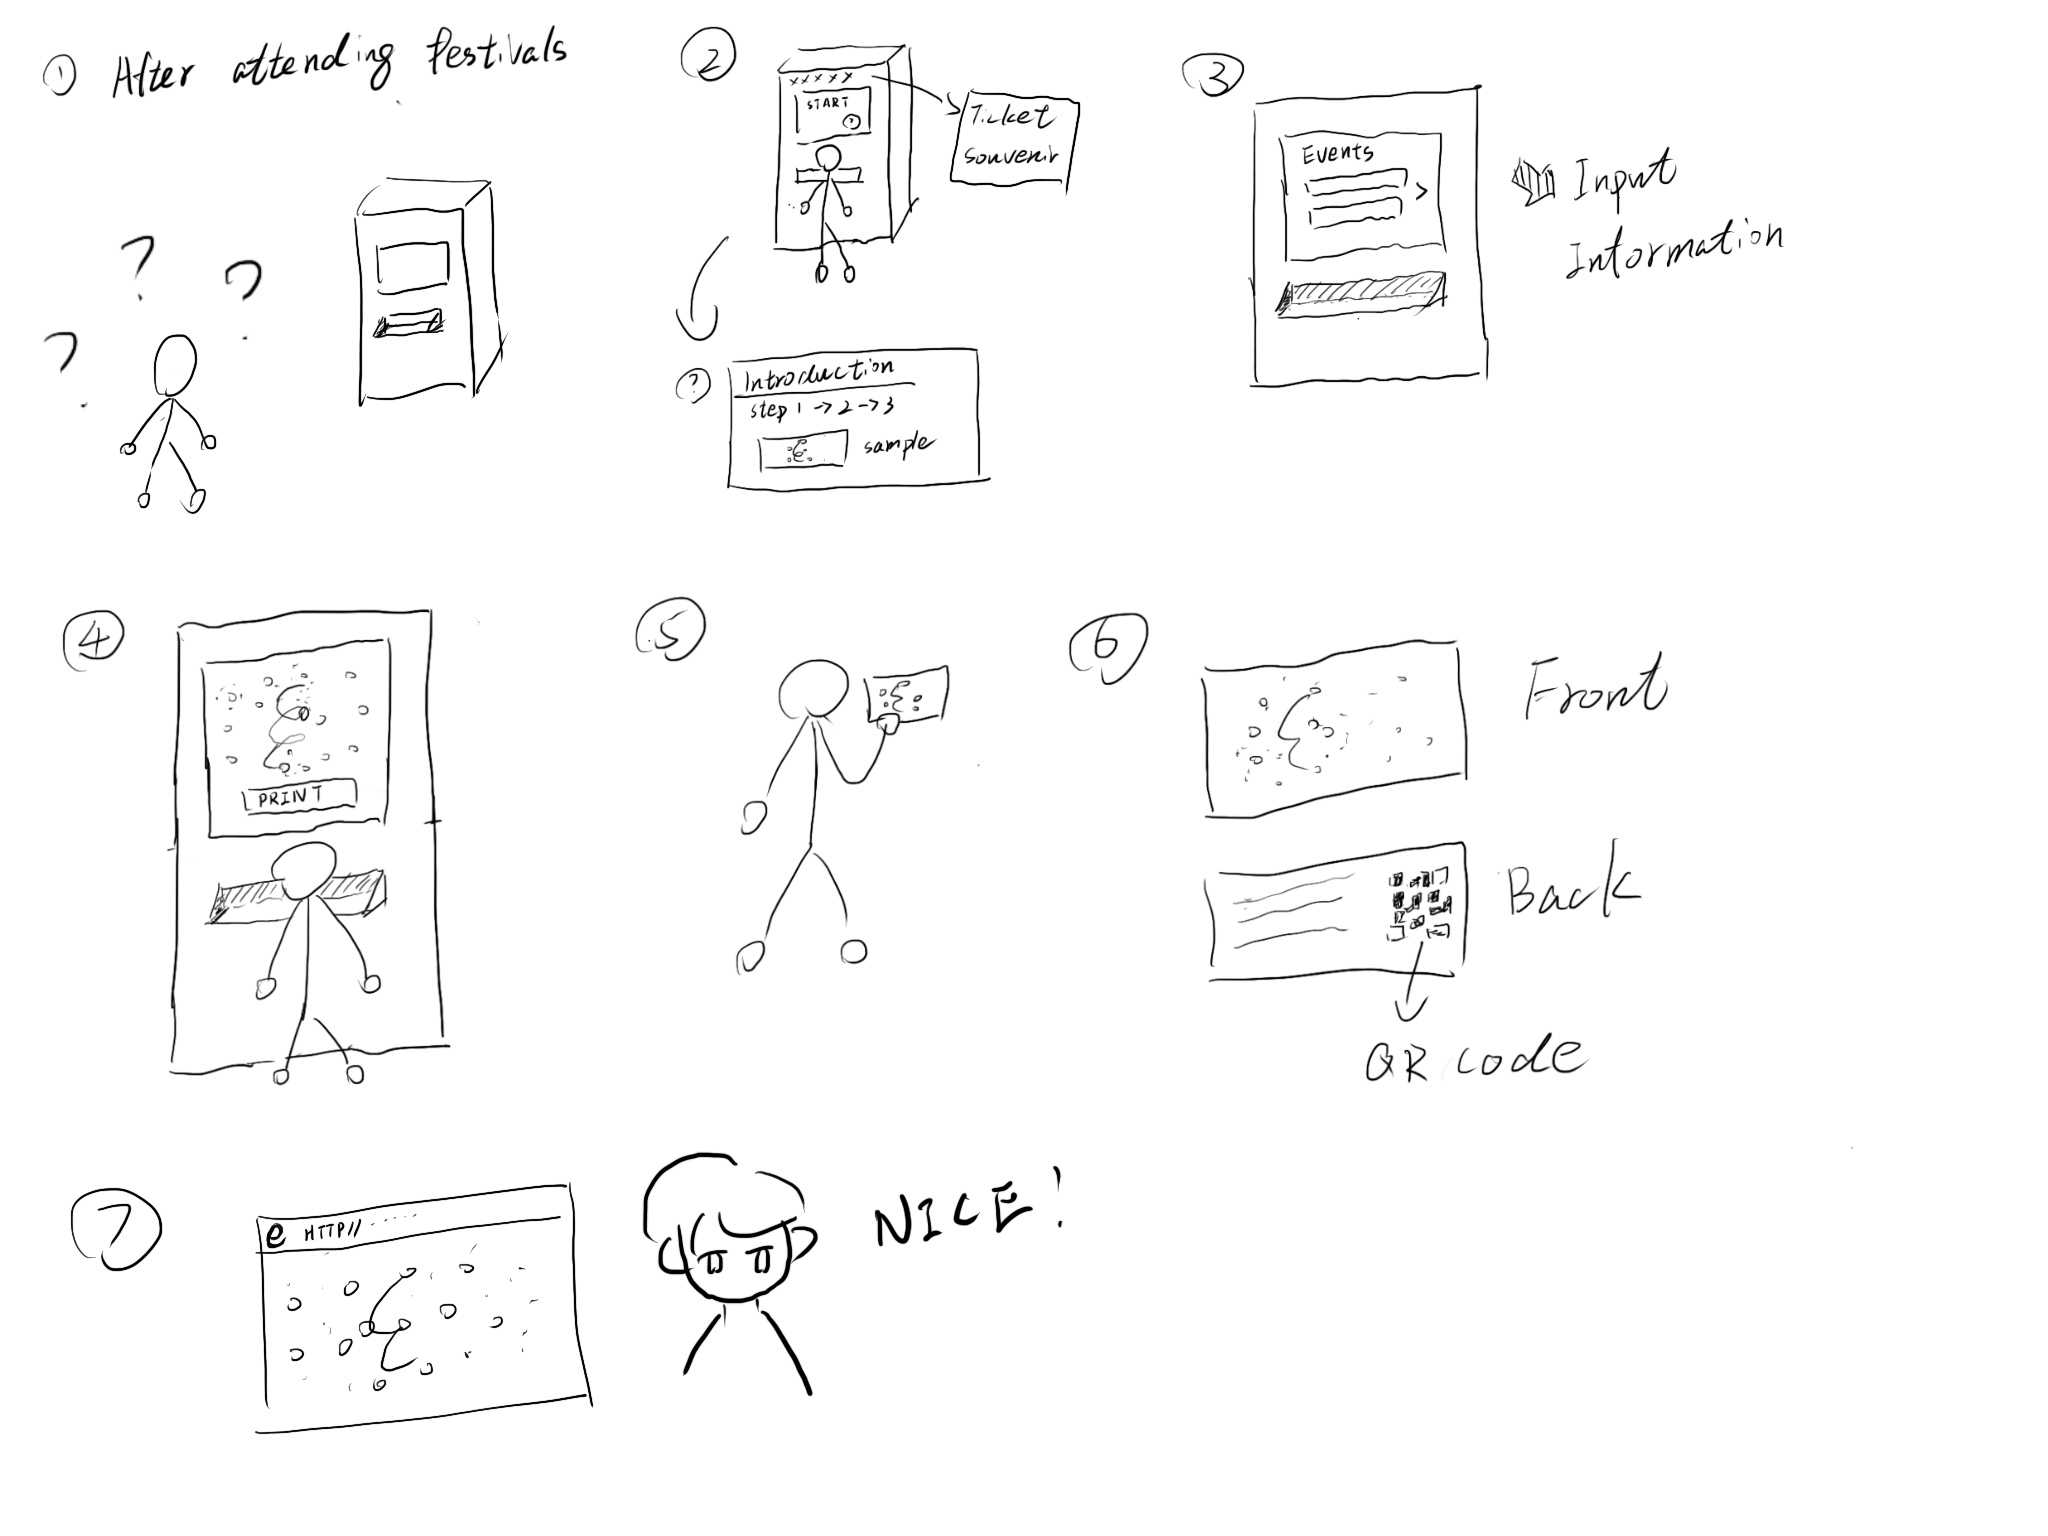 ① After attending festivals
? ? ?
②
xxxxx
START
?
Ticket
souvenir
?
Introduction
step 1 -> 2 -> 3
sample
③
Events
>
Input
Information
④
PRINT
⑤
⑥
Front
Back
QR code
⑦
e HTTP// ......
NICE!